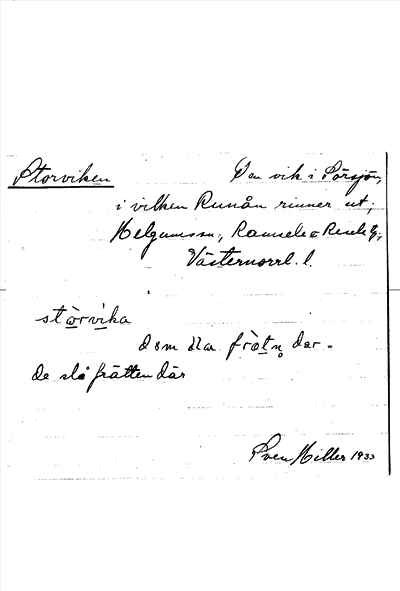 Storviken
Den vik i Pörsjön,
i vilken Runån rinner ut;
Helgumssn., Ramsele o Resele tg.,
Västernorrl. l.
stòrvika
döm sla fròtn̥ dar =
de slå frätten där
Sven Miller 1933